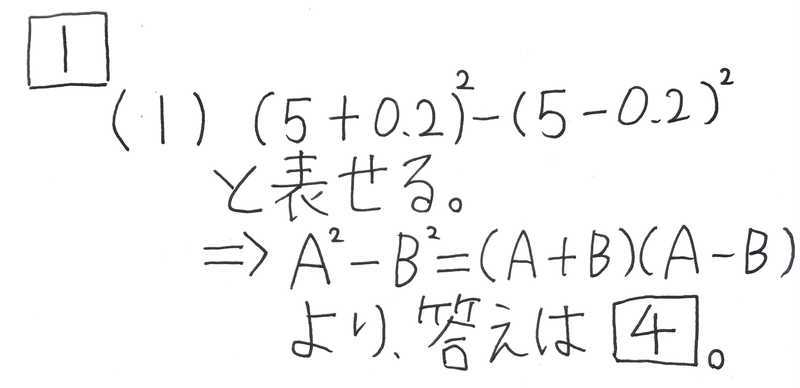 1
(1) (5+0.2)²-(5-0.2)²
と表せる。
⇒ A²-B²=(A+B)(A-B)
より、答えは 4。